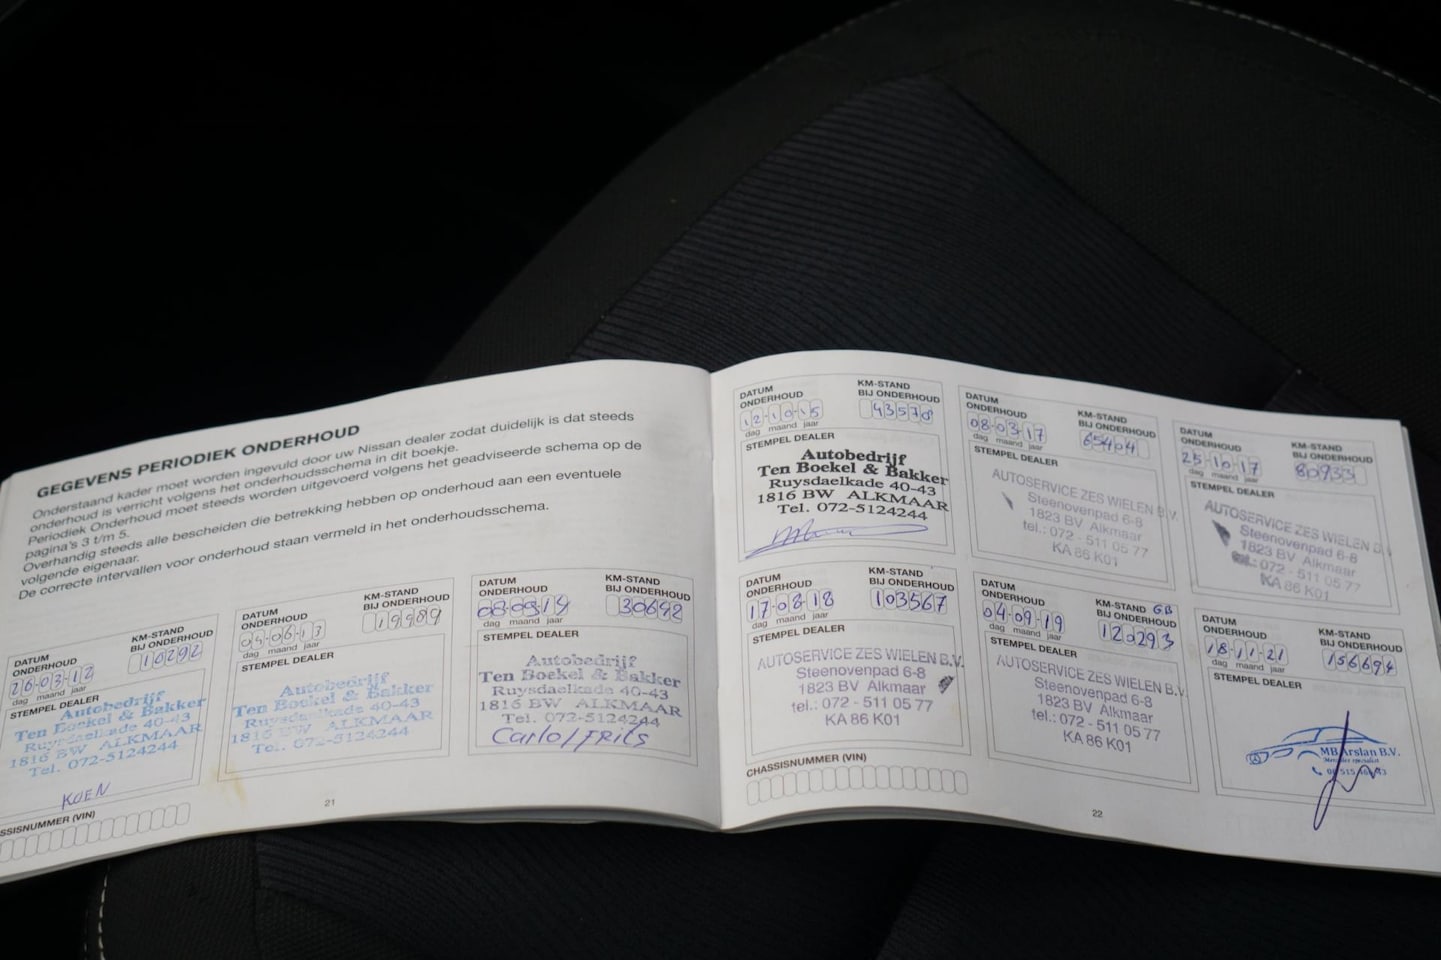 GEGEVENS PERIODIEK ONDERHOUD
Onderstaand kader moet worden ingevuld door uw Nissan dealer zodat duidelijk is dat steeds
onderhoud is verricht volgens het onderhoudsschema in dit boekje.
Periodiek Onderhoud moet steeds worden uitgevoerd volgens het geadviseerde schema op de
pagina's 3 t/m 5.
Overhandig steeds alle bescheiden die betrekking hebben op onderhoud aan een eventuele
volgende eigenaar.
De correcte intervallen voor onderhoud staan vermeld in het onderhoudsschema.
DATUM
ONDERHOUD
KM-STAND
BIJ ONDERHOUD
26-03-12
10292
dag maand jaar
STEMPEL DEALER
Autobedrijf
Ten Boekel & Bakker
Ruysdaelkade 40-43
1816 BW ALKMAAR
Tel. 072-5124244
KOEN
DATUM
ONDERHOUD
KM-STAND
BIJ ONDERHOUD
05-06-13
19989
dag maand jaar
STEMPEL DEALER
Autobedrijf
Ten Boekel & Bakker
Ruysdaelkade 40-43
1816 BW ALKMAAR
Tel. 072-5124244
DATUM
ONDERHOUD
KM-STAND
BIJ ONDERHOUD
08-09-14
30692
dag maand jaar
STEMPEL DEALER
Autobedrijf
Ten Boekel & Bakker
Ruysdaelkade 40-43
1816 BW ALKMAAR
Tel. 072-5124244
Carlo/FRITS
SSISNUMMER (VIN)
21
DATUM
ONDERHOUD
KM-STAND
BIJ ONDERHOUD
12-10-15
43570
dag maand jaar
STEMPEL DEALER
Autobedrijf
Ten Boekel & Bakker
Ruysdaelkade 40-43
1816 BW ALKMAAR
Tel. 072-5124244
DATUM
ONDERHOUD
KM-STAND
BIJ ONDERHOUD
08-03-17
65404
dag maand jaar
STEMPEL DEALER
AUTOSERVICE ZES WIELEN B.V.
Steenovenpad 6-8
1823 BV Alkmaar
tel.: 072 - 511 05 77
KA 86 K01
DATUM
ONDERHOUD
KM-STAND
BIJ ONDERHOUD
25-10-17
80933
dag maand jaar
STEMPEL DEALER
AUTOSERVICE ZES WIELEN B
Steenovenpad 6-8
1823 BV Alkmaar
tel.: 072 - 511 05 77
KA 86 K01
DATUM
ONDERHOUD
KM-STAND
BIJ ONDERHOUD
17-08-18
103567
dag maand jaar
STEMPEL DEALER
AUTOSERVICE ZES WIELEN B.V.
Steenovenpad 6-8
1823 BV Alkmaar
tel.: 072 - 511 05 77
KA 86 K01
DATUM
ONDERHOUD
KM-STAND GB
BIJ ONDERHOUD
04-09-19
120293
dag maand jaar
STEMPEL DEALER
AUTOSERVICE ZES WIELEN B.V.
Steenovenpad 6-8
1823 BV Alkmaar
tel.: 072 - 511 05 77
KA 86 K01
DATUM
ONDERHOUD
KM-STAND
BIJ ONDERHOUD
18-11-21
156694
dag maand jaar
STEMPEL DEALER
MB Arslan B.V.
CHASSISNUMMER (VIN)
22